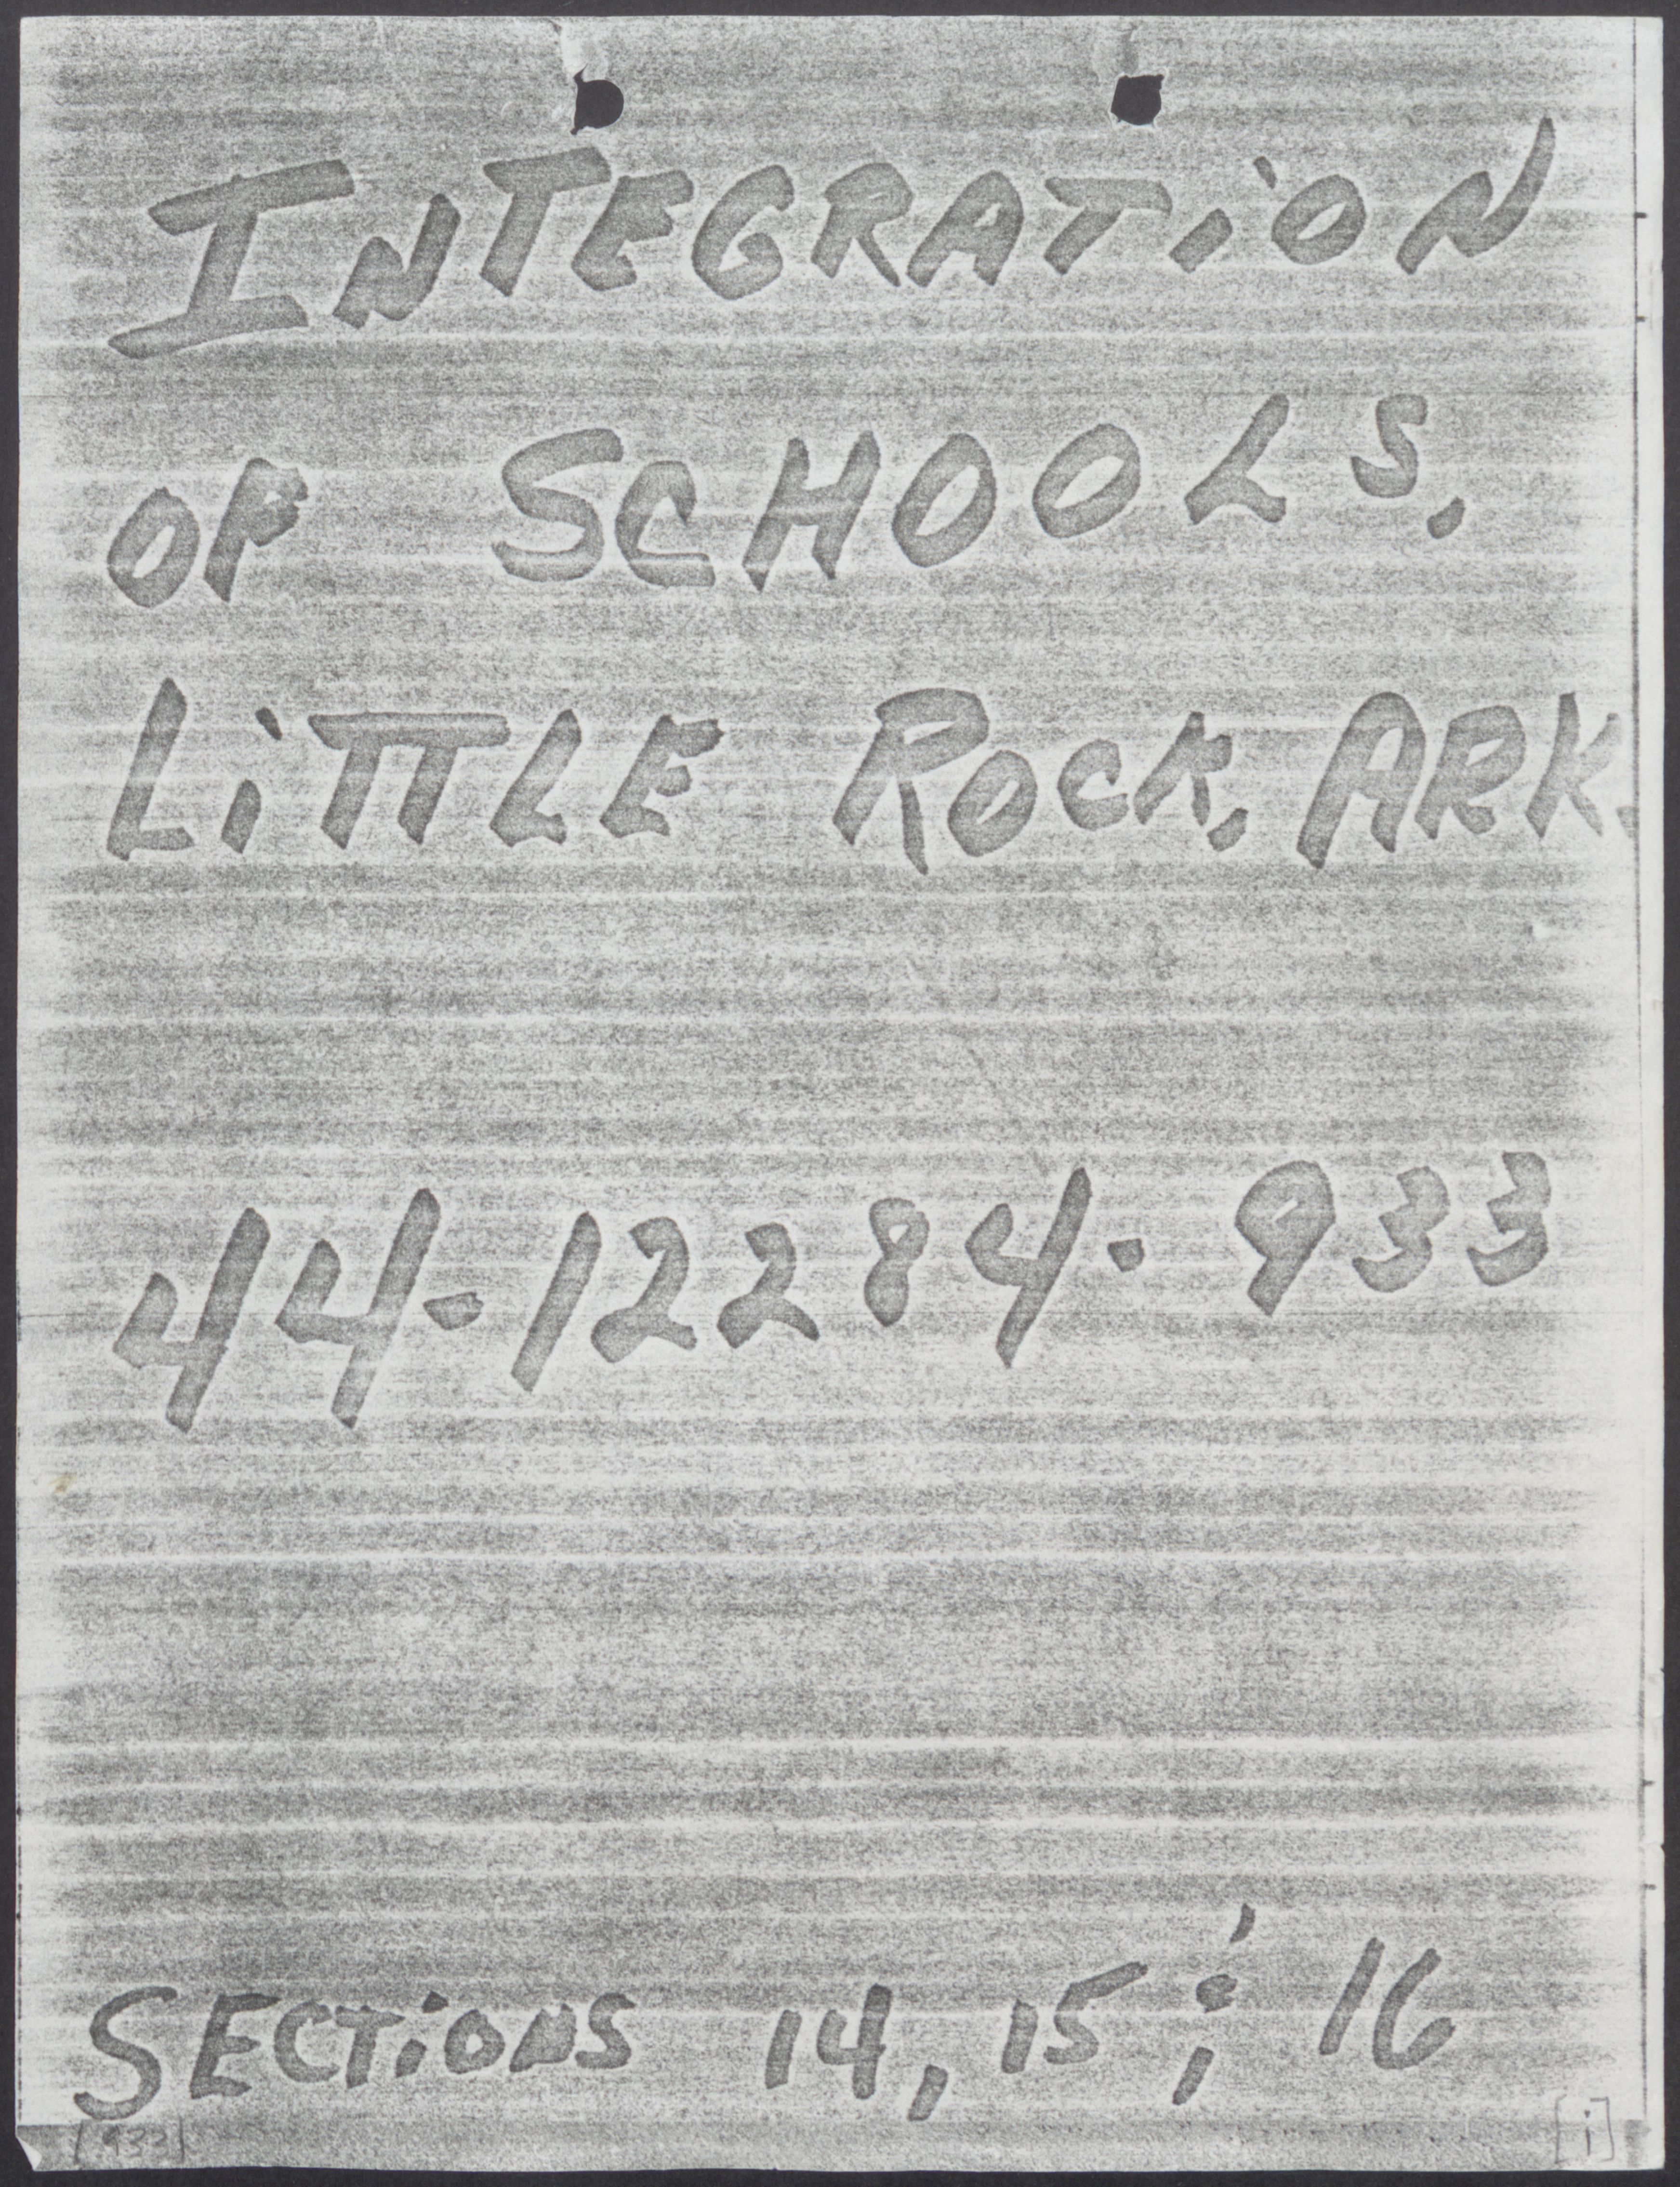 INTEGRATiON
OF SCHOOLS,
LiTTLE ROCK, ARK.
44-12284-933
SECTiONS 14, 15 & 16
[933] [i]